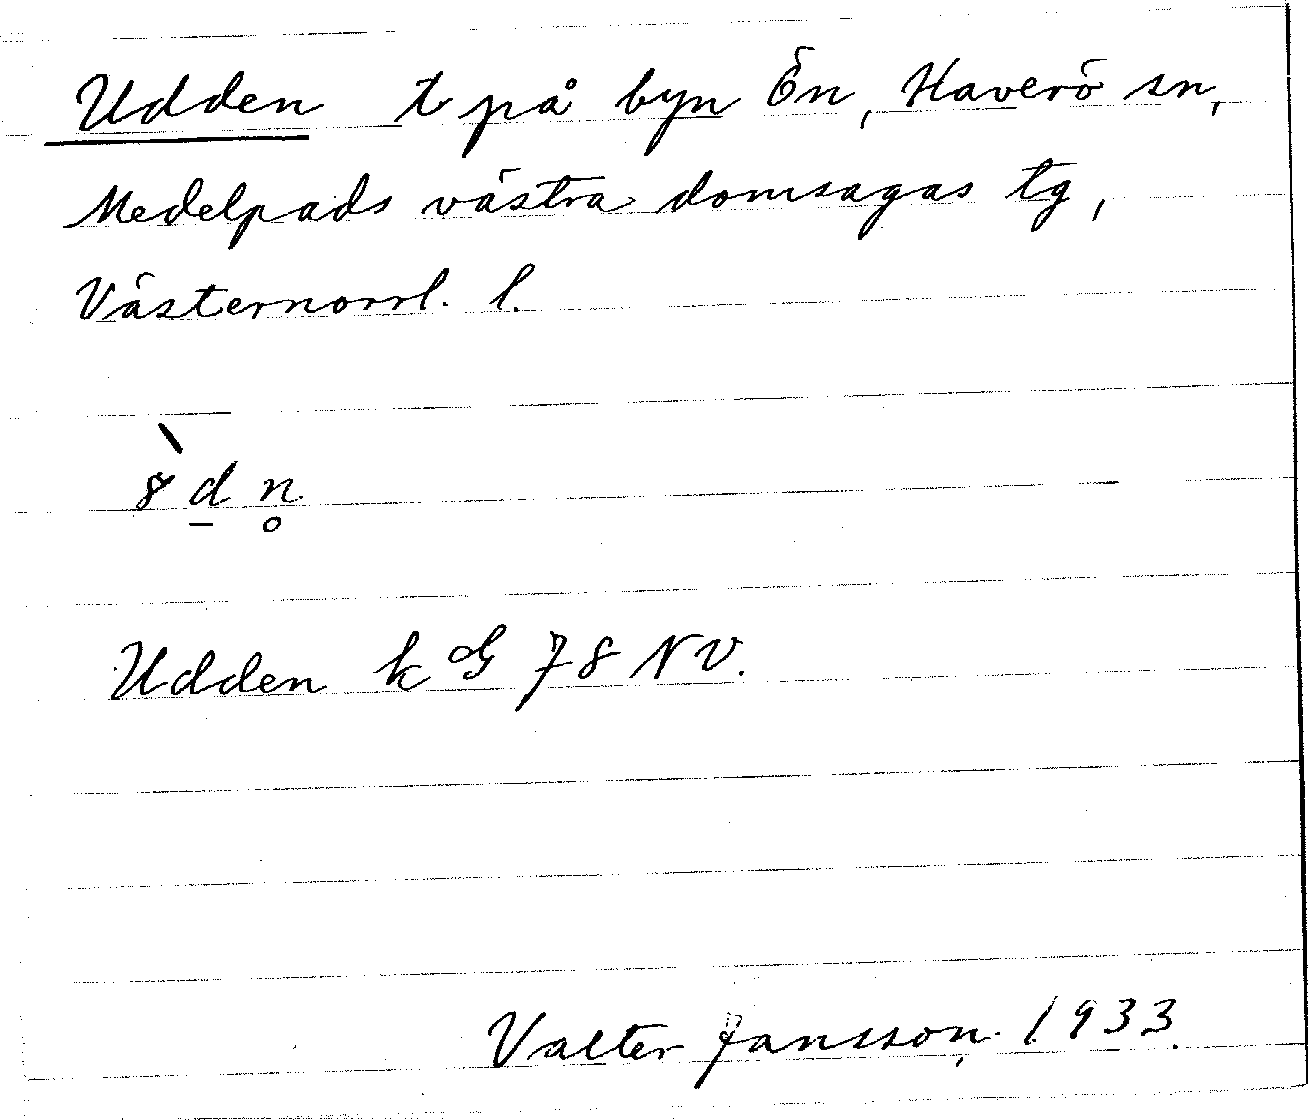 Udden t på byn Ön, Haverö sn,
Medelpads västra domsagas tg,
Västernorrl. l.
8̀ d̲ n̥
Udden k G 78 NV.
Valter Jansson. 1933.